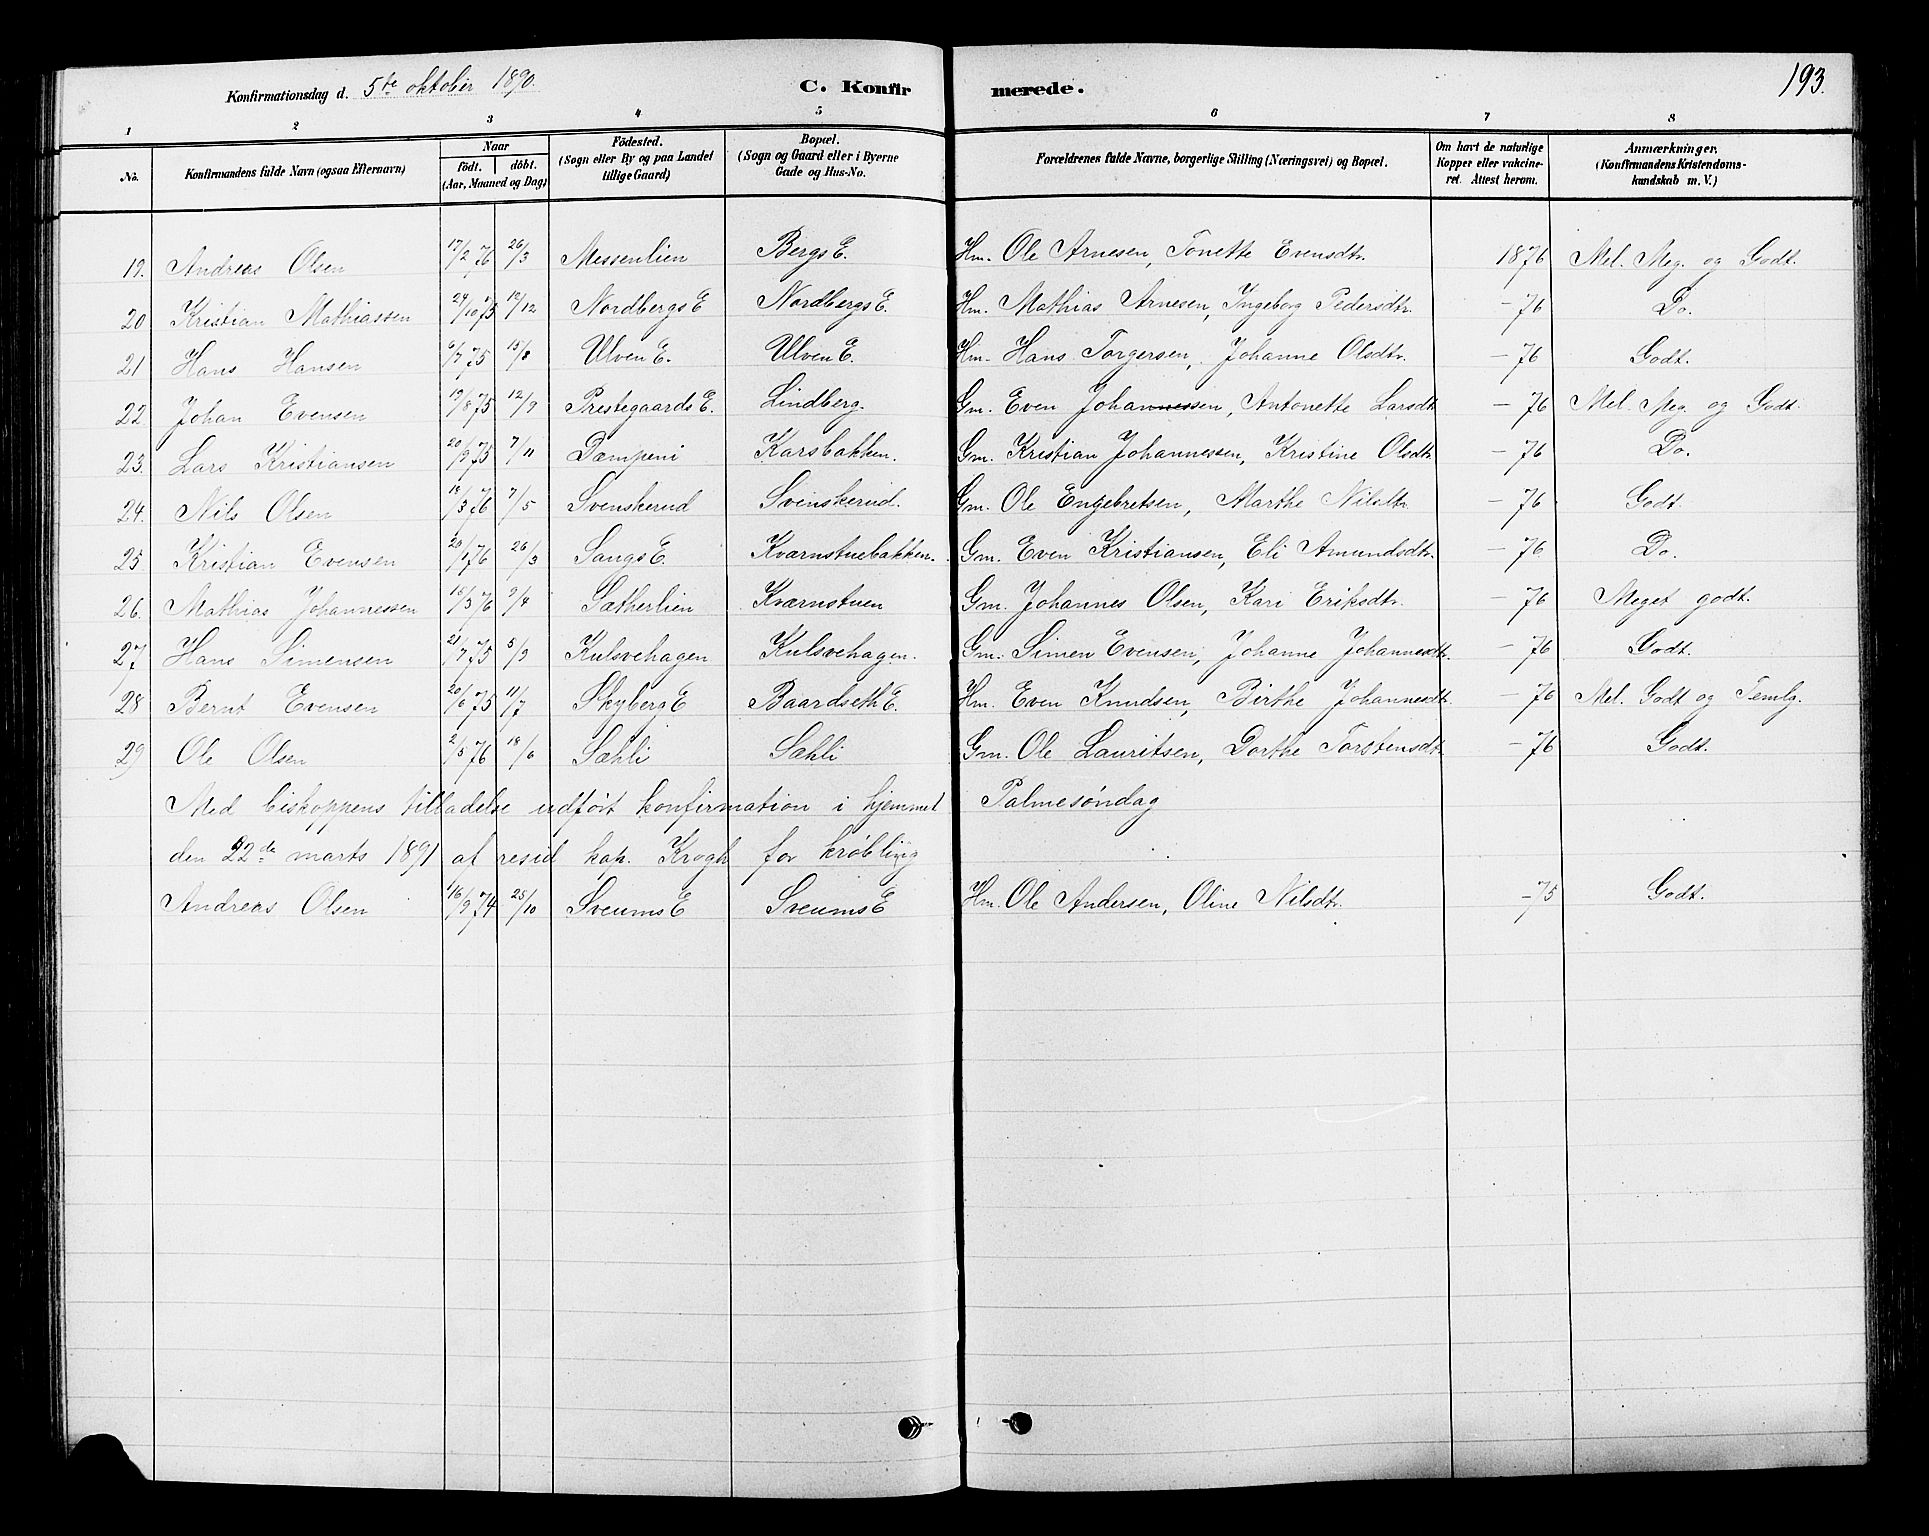 Konfirmationsdag d. 5te oktober 1890. C. Konfirmerede. 193.
1 2 3 4 5 6 7 8
No. Konfirmandens fulde Navn (ogsaa Efternavn) Naar födt. döbt. (Aar, Maaned og Dag) Födested. (Sogn eller By og paa Landet tillige Gaard) Bopæl. (Sogn og Gaard eller i Byerne Gade og Hus-No. Forældrenes fulde Navne, borgerlige Stilling (Næringsvei) og Bopæl. Om havt de naturlige Kopper eller vakcineret. Attest herom. Anmærkninger. (Konfirmandens Kristendomskundskab m. V.)
19. Andreas Olsen 17/2 76 26/3 Messenlien Bergs E. Hm. Ole Arnesen, Tonette Evensdtr. 1876 Mel. Meg. og Godt.
20 Kristian Mathiassen 24/10 75 12/12 Nordbergs E Nordbergs E. Hm. Mathias Arnesen, Ingeborg Pedersdtr. – 76 Do.
21 Hans Hansen 6/7 75 15/8 Ulven E. Ulven E. Hm. Hans Torgersen, Johanne Olsdtr. – 76 Godt.
22 Johan Evensen 19/8 75 12/9 Prestegaards E. Lindberg. Gm. Even Johannessen, Antonette Larsdt – 76 Mel. Meg. og Godt.
23. Lars Kristiansen 20/9 75 7/11 Dæmpeni Karsbakken. Gm. Kristian Johannessen, Kristine Olsdt – 76 Do.
24. Nils Olsen 18/3 76 7/5 Svenskerud Svinskerud. Gm. Ole Engebretsen, Marthe Nilsdtr – 76 Godt.
25. Kristian Evensen 20/1 76 26/3 Sangs E. Kværnstuebakken. Gm. Even Kristiansen, Eli Amundsdtr. – 76 Do.
26. Mathias Johannessen 18/3 76 9/4 Sætherlien Kværnstuen Gm. Johannes Olsen, Kari Eriksdtr. – 76 Meget godt.
27 Hans Simensen 21/7 75 5/9 Kulsvehagen Kulsvehagen. Gm. Simen Evensen, Johanne Johannesdtr. – 76 Godt.
28 Bernt Evensen 20/6 75 11/7 Skyberg E Baardseth E. Hm. Even Knudsen, Birthe Johannesdtr. – 76 Mel. Godt og Temlg.
29 Ole Olsen 2/5 76 18/6 Sæhli Sæhli Gm. Ole Lauritsen, Dorthe Torstensdt – 76 Godt.
Med biskoppens tilladelse udført konfirmation i hjemmet Palmesøndag
den 22de marts 1891 af resid kap. Krogh for krøbling
Andreas Olsen 16/9 74 25/10 Sveums E Sveums E Hm. Ole Andersen, Oline Nilsdtr. – 75 Godt.